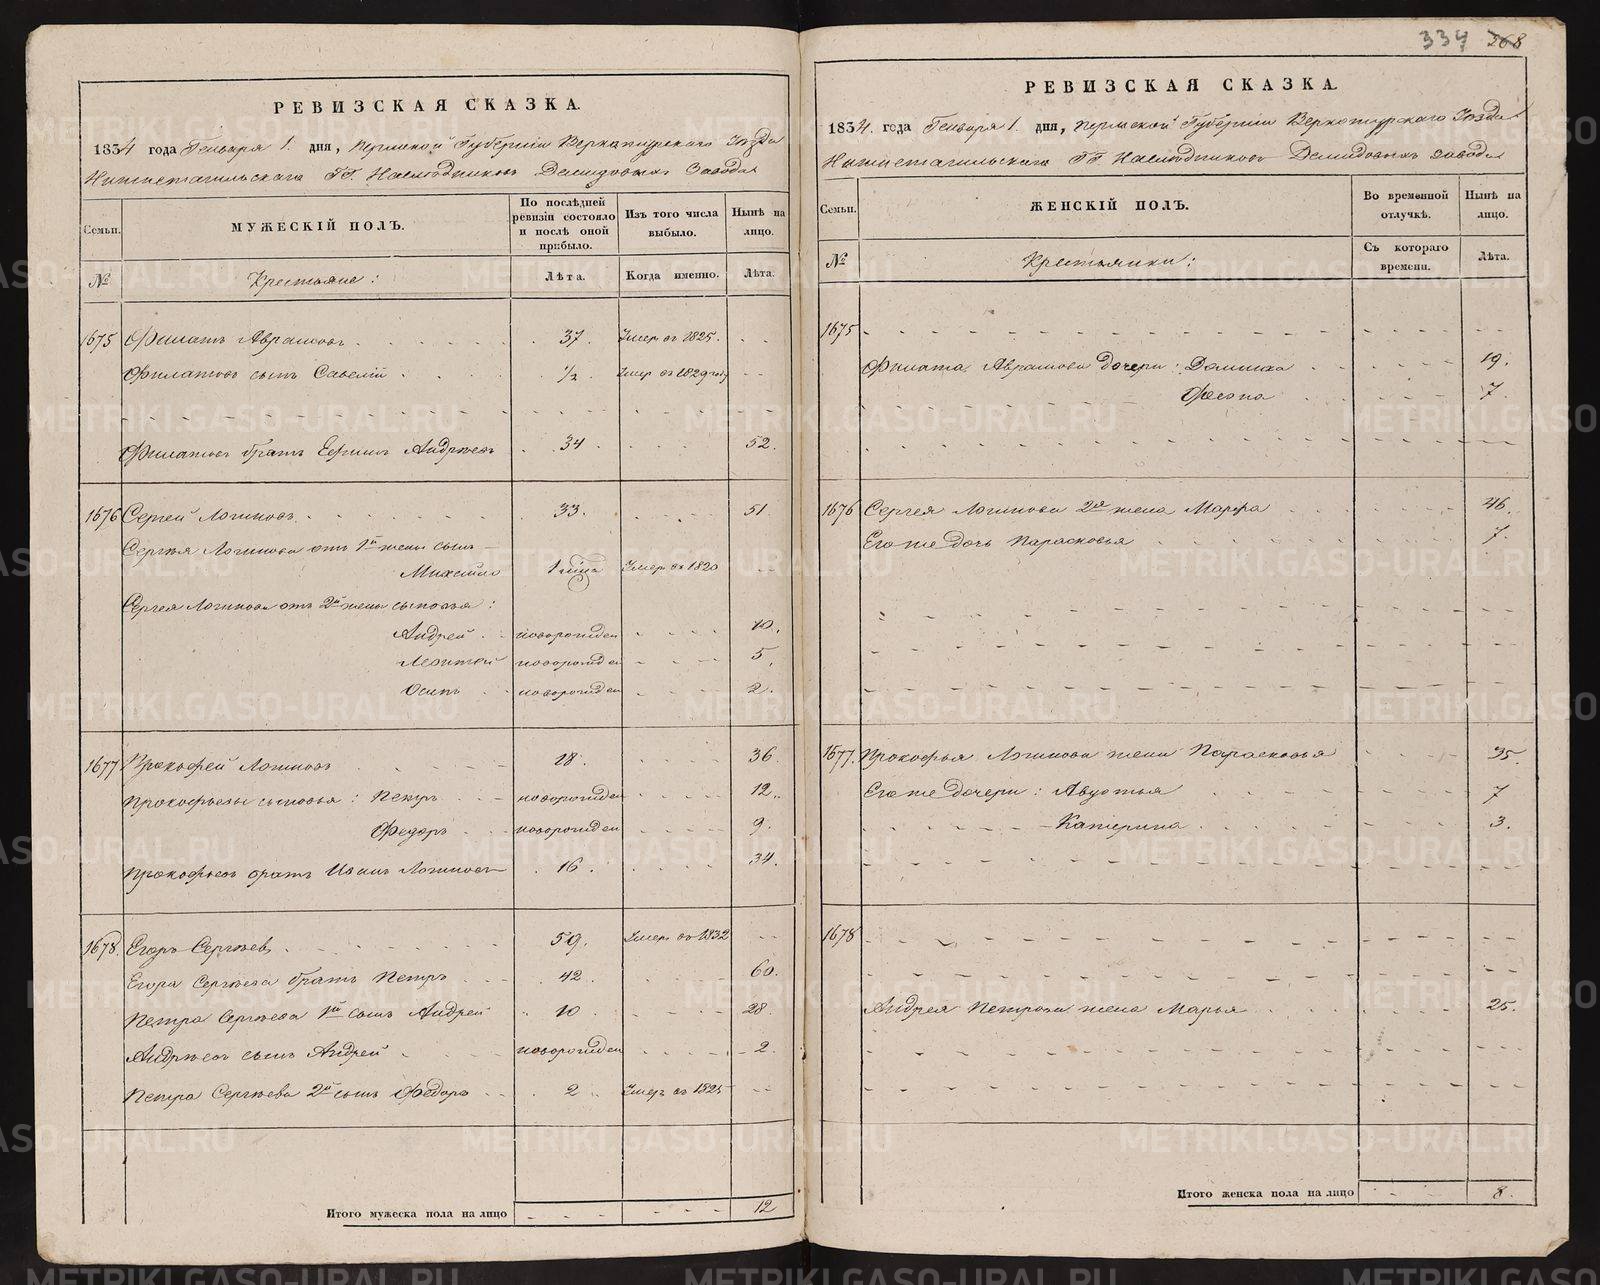 РЕВИЗСКАЯ СКАЗКА.
1834 года Генваря 1. дня, Пермской Губерніи Верхотурскаго Уѣзда
Нижнетагильскаго ГГ. Наслѣдниковъ Демидовыхъ Завода
Семьи. МУЖЕСКІЙ ПОЛЪ. По послѣдней ревизіи состояло и послѣ оной прибыло. Изъ того числа выбыло. Нынѣ на лицо.
№ Крестьяне: Лѣта. Когда именно. Лѣта.
1675 Филатъ Аврамовъ 37. Умер въ 1825.
Филатовъ сынъ Савелій 1/2 Умер въ 1829 году
Филатовъ братъ Ефимъ Андрѣевъ 34. 52.
1676 Сергей Логиновъ 33. 51
Сергѣя Логинова отъ 1й жены сынъ
Михайло Умеръ въ 1820
Сергея Логинова отъ 2й жены сыновья:
Андрей новорожден 10.
Леонтей новорожден 5.
Осипъ новорожден 2.
1677 Прокофей Логиновъ 18. 36.
Прокофьевы сыновья: Петръ новорожден 12.
Федоръ новорожден 9.
Прокофьевъ братъ Иванъ Логиновъ 16. 34.
1678. Егоръ Сергѣевъ 59. Умеръ въ 1832
Егора Сергѣева братъ Петръ 42. 60.
Петра Сергѣева 1й сынъ Андрей 10. 28.
Андрѣевъ сынъ Андрей новорожден 2.
Петра Сергѣева 2й сынъ Федоръ 2 Умеръ въ 1825
Итого мужеска пола на лицо 12
334 268
РЕВИЗСКАЯ СКАЗКА.
1834. года Генваря 1. дня, Пермской Губерніи Верхотурскаго Уѣзда
Нижнетагильскаго ГГ. Наслѣдниковъ Демидовыхъ завода
Семьи. ЖЕНСКІЙ ПОЛЪ. Во временной отлучкѣ. Нынѣ на лицо.
№ Крестьянки: Съ котораго времени. Лѣта.
1675
Филата Аврамова дочери: Домника 19.
Феона 7.
1676 Сергея Логинова 2я жена Марфа 46.
Его же дочь Парасковья 7.
1677. Прокофья Логинова жена Парасковья 35.
Его же дочери: Авдотья 7
Катерина 3.
1678
Андрея Петрова жена Марья 25.
Итого женска пола на лицо 8.
METRIKI.GASO-URAL.RU